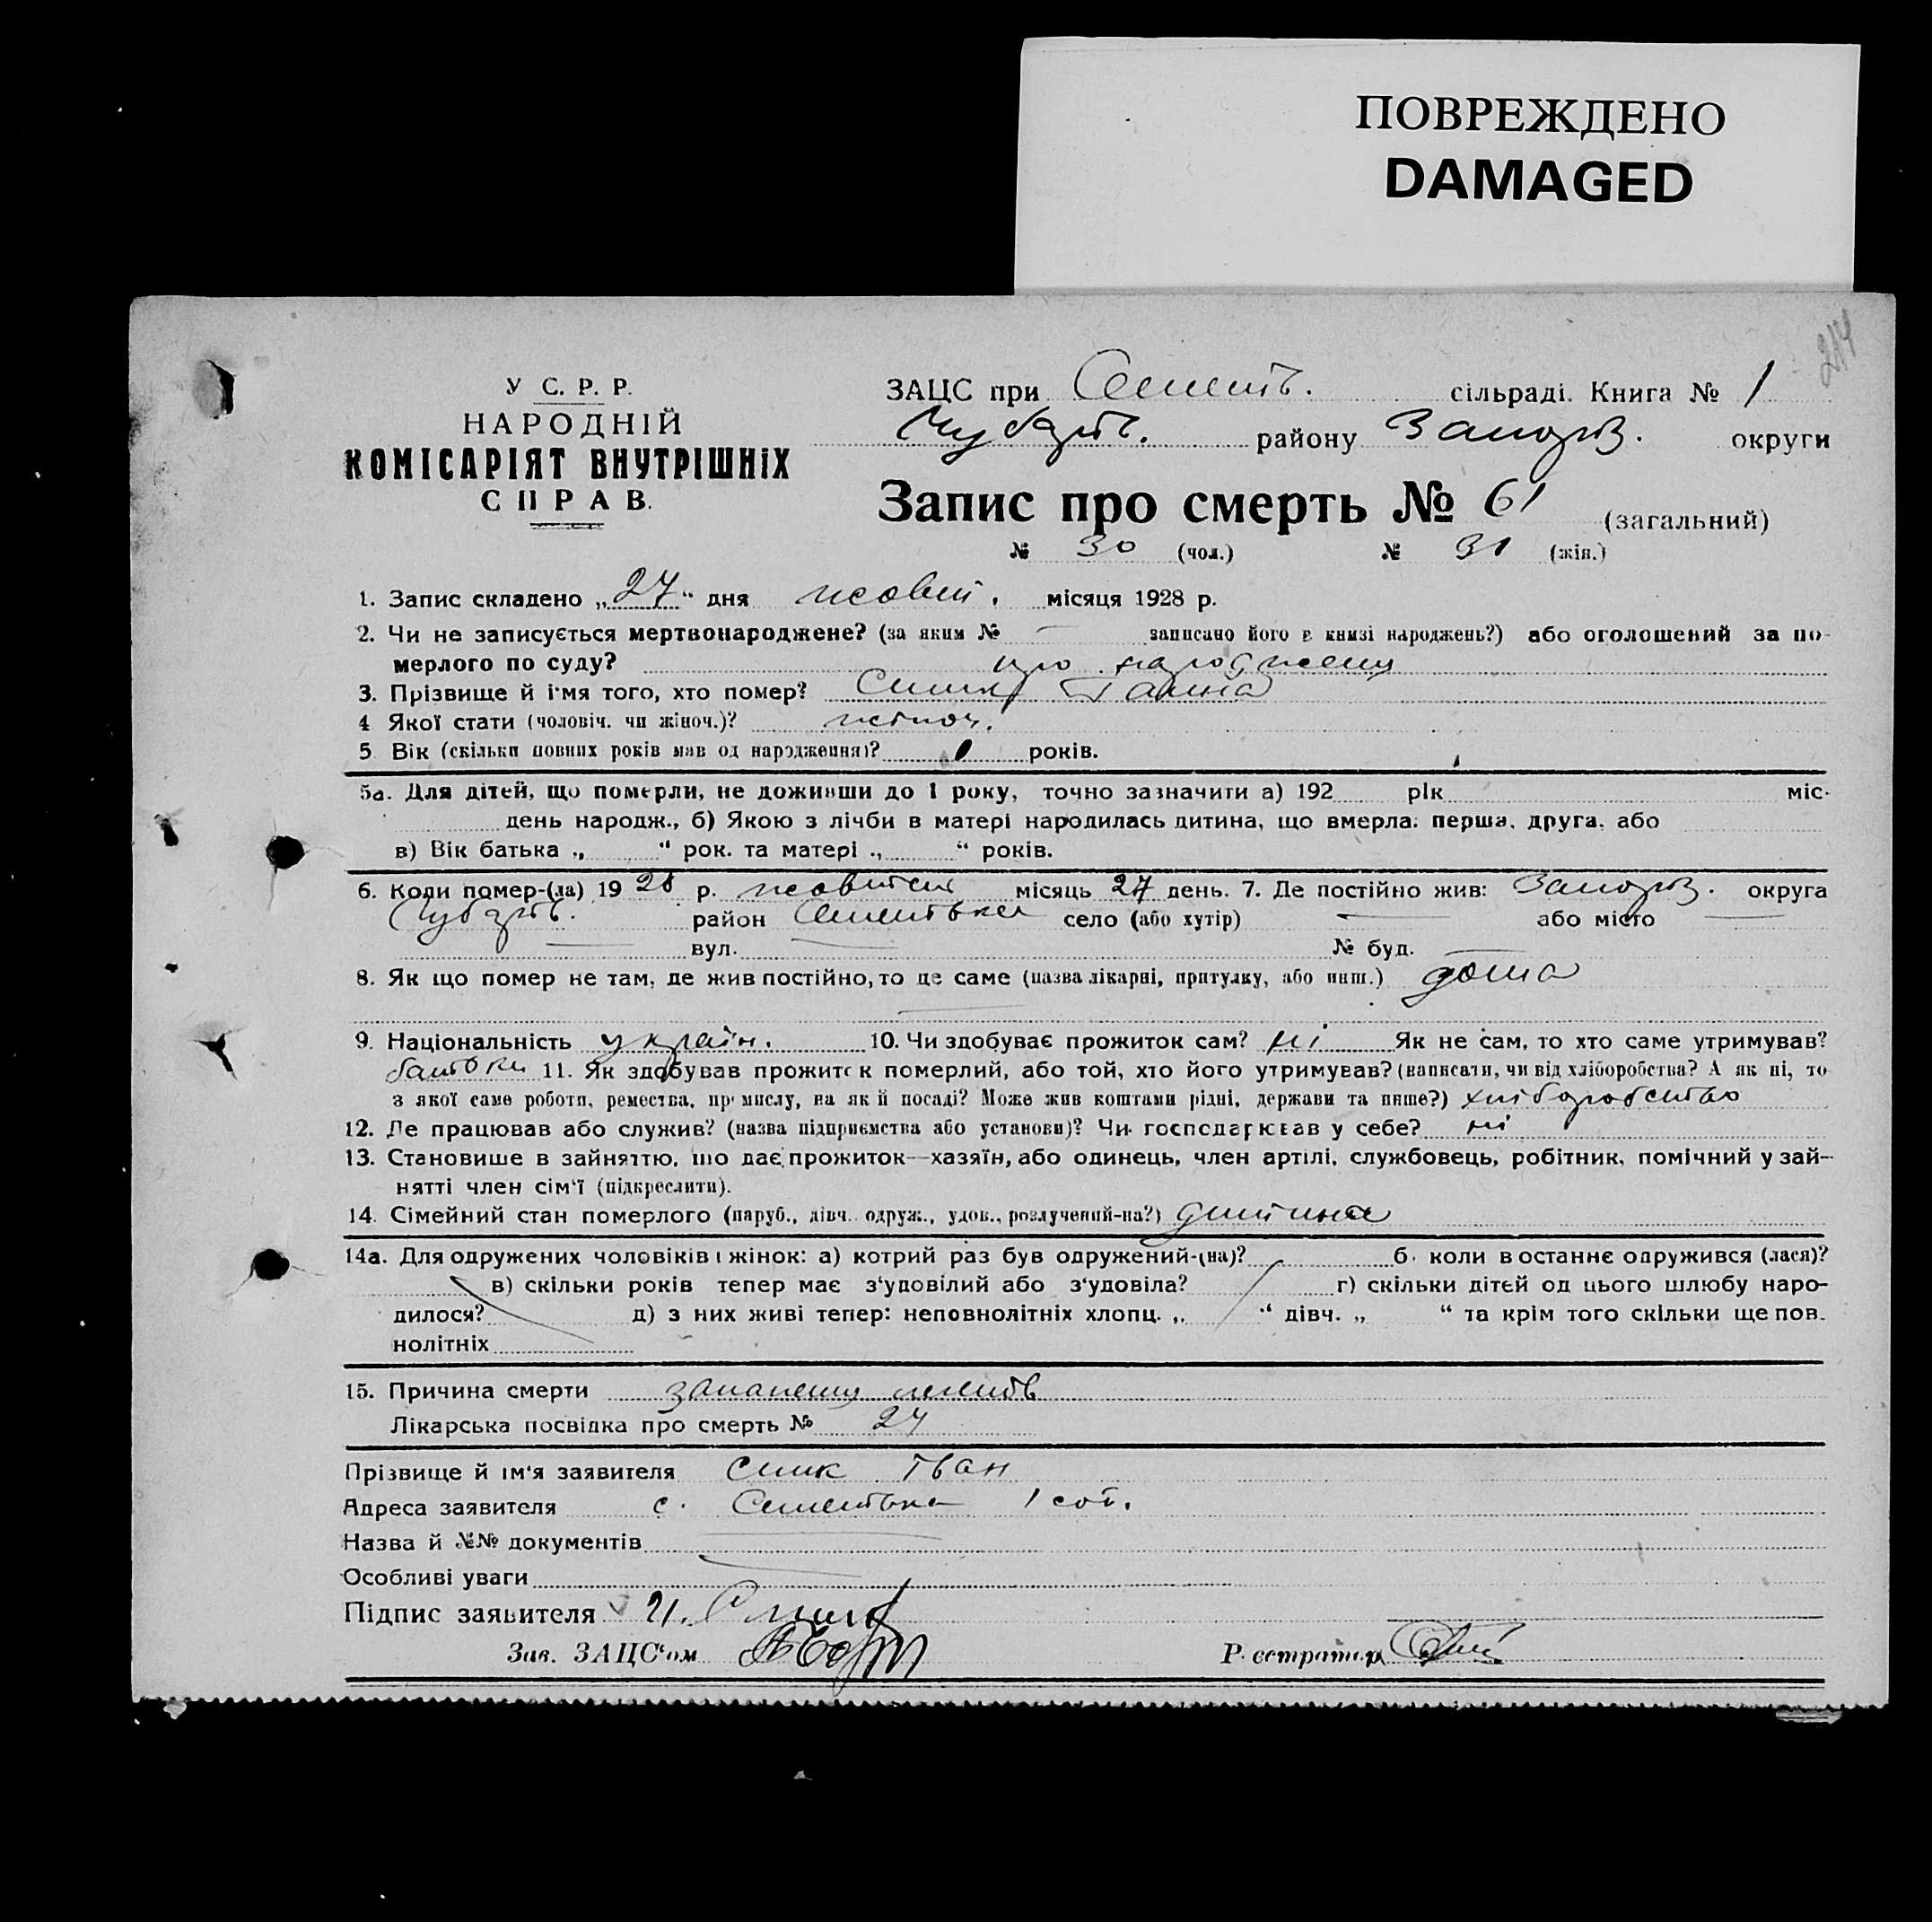 ПОВРЕЖДЕНО
DAMAGED
214
У С. Р. Р.
НАРОДНІЙ
КОМІСАРІЯТ ВНУТРІШНІХ
СПРАВ.
ЗАЦС при Семент. сільраді. Книга № 1
Чубарів. району Запоріз. округи
Запис про смерть № 61 (загальний)
№ 30 (чол.) № 31 (жін.)
1. Запис складено „27“ дня жовт. місяця 1928 р.
2. Чи не записується мертвонароджене? (за яким № – записано його в книзі народжень?) або оголошений за по-
мерлого по суду? про народжену
3. Прізвище й ім'я того, хто помер? Ганна
4 Якої стати (чоловіч. чи жіноч.)? жіноч.
5 Вік (скільки повних років мав од народження)? 1 років.
5а. Для дітей, що померли, не доживши до 1 року, точно зазначити а) 192 рік міс.
день народж., б) Якою з лічби в матері народилась дитина, що вмерла: перша, друга, або
в) Вік батька „ “ рок. та матері „ “ років.
6. Коли помер-(ла) 1928 р. жовтня місяць 27 день. 7. Де постійно жив: Запоріз. округа
Чубарів. район село (або хутір) — або місто —
— вул. — № буд. —
8. Як що помер не там, де жив постійно, то де саме (назва лікарні, притулку, або инш.) дома
9. Національність україн. 10. Чи здобуває прожиток сам? ні Як не сам, то хто саме утримував?
батьки 11. Як здобував прожиток померлий, або той, хто його утримував? (написати, чи від хліборобства? А як ні, то
з якої саме роботи, ремества, промислу, на якій посаді? Може жив коштами рідні, держави та инше?) хліборобство
12. Де працював або служив? (назва підприємства або установи)? Чи господарював у себе? ні
13. Становище в зайняттю, що дає прожиток—хазяїн, або одинець, член артілі, службовець, робітник, помічний у зай-
нятті член сім'ї (підкреслити).
14. Сімейний стан померлого (паруб., дівч. одруж., удов., розлучений-на?) дитина
14а. Для одружених чоловіків і жінок: а) котрий раз був одружений-(на)? б. коли востаннє одружився (лася)?
в) скільки років тепер має з'удовілий або з'удовіла? г) скільки дітей од цього шлюбу наро-
дилося? д) з них живі тепер: неповнолітніх хлопц. „ “ дівч. „ “ та крім того скільки ще пов.
нолітніх
15. Причина смерти запалення легенів
Лікарська посвідка про смерть № 27
Прізвище й ім'я заявителя Іван
Адреса заявителя с. 1 сот.
Назва й №№ документів
Особливі уваги
Підпис заявителя И.
Зав. ЗАЦС'ом Реєстратор